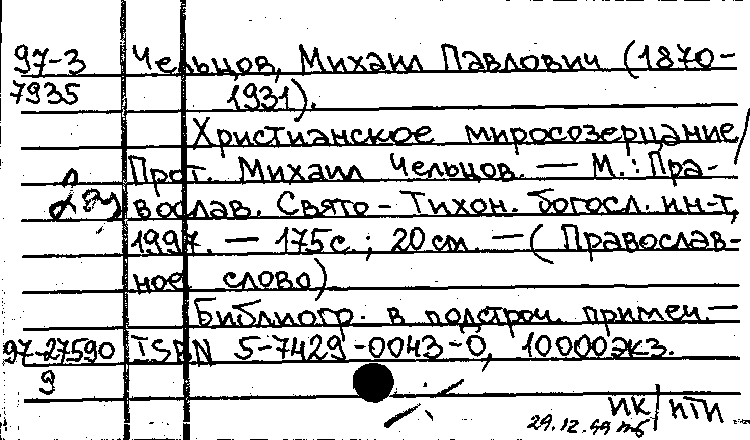 97-3 Чельцов, Михаил Павлович (1870-
7935 1931).
Христианское миросозерцание/
Прот. Михаил Чельцов. — М.: Пра-
вослав. Свято-Тихон. богосл. ин-т,
1997. — 175 с.; 20 см. — (Православ-
ное слово)
Библиогр. в подстроч. примеч. —
97-27590 ISBN 5-7429-0043-0, 10000 экз.
9
ИК/ПТИ
29.12.99